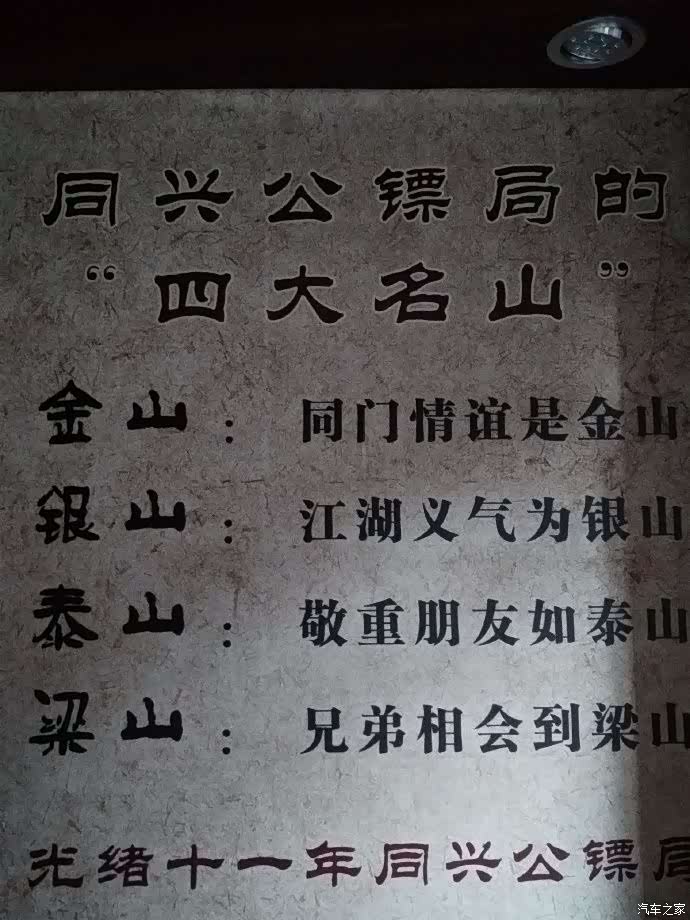 同兴公镖局的
“四大名山”
金山：同门情谊是金山
银山：江湖义气为银山
泰山：敬重朋友如泰山
梁山：兄弟相会到梁山
光绪十一年同兴公镖局
汽车之家